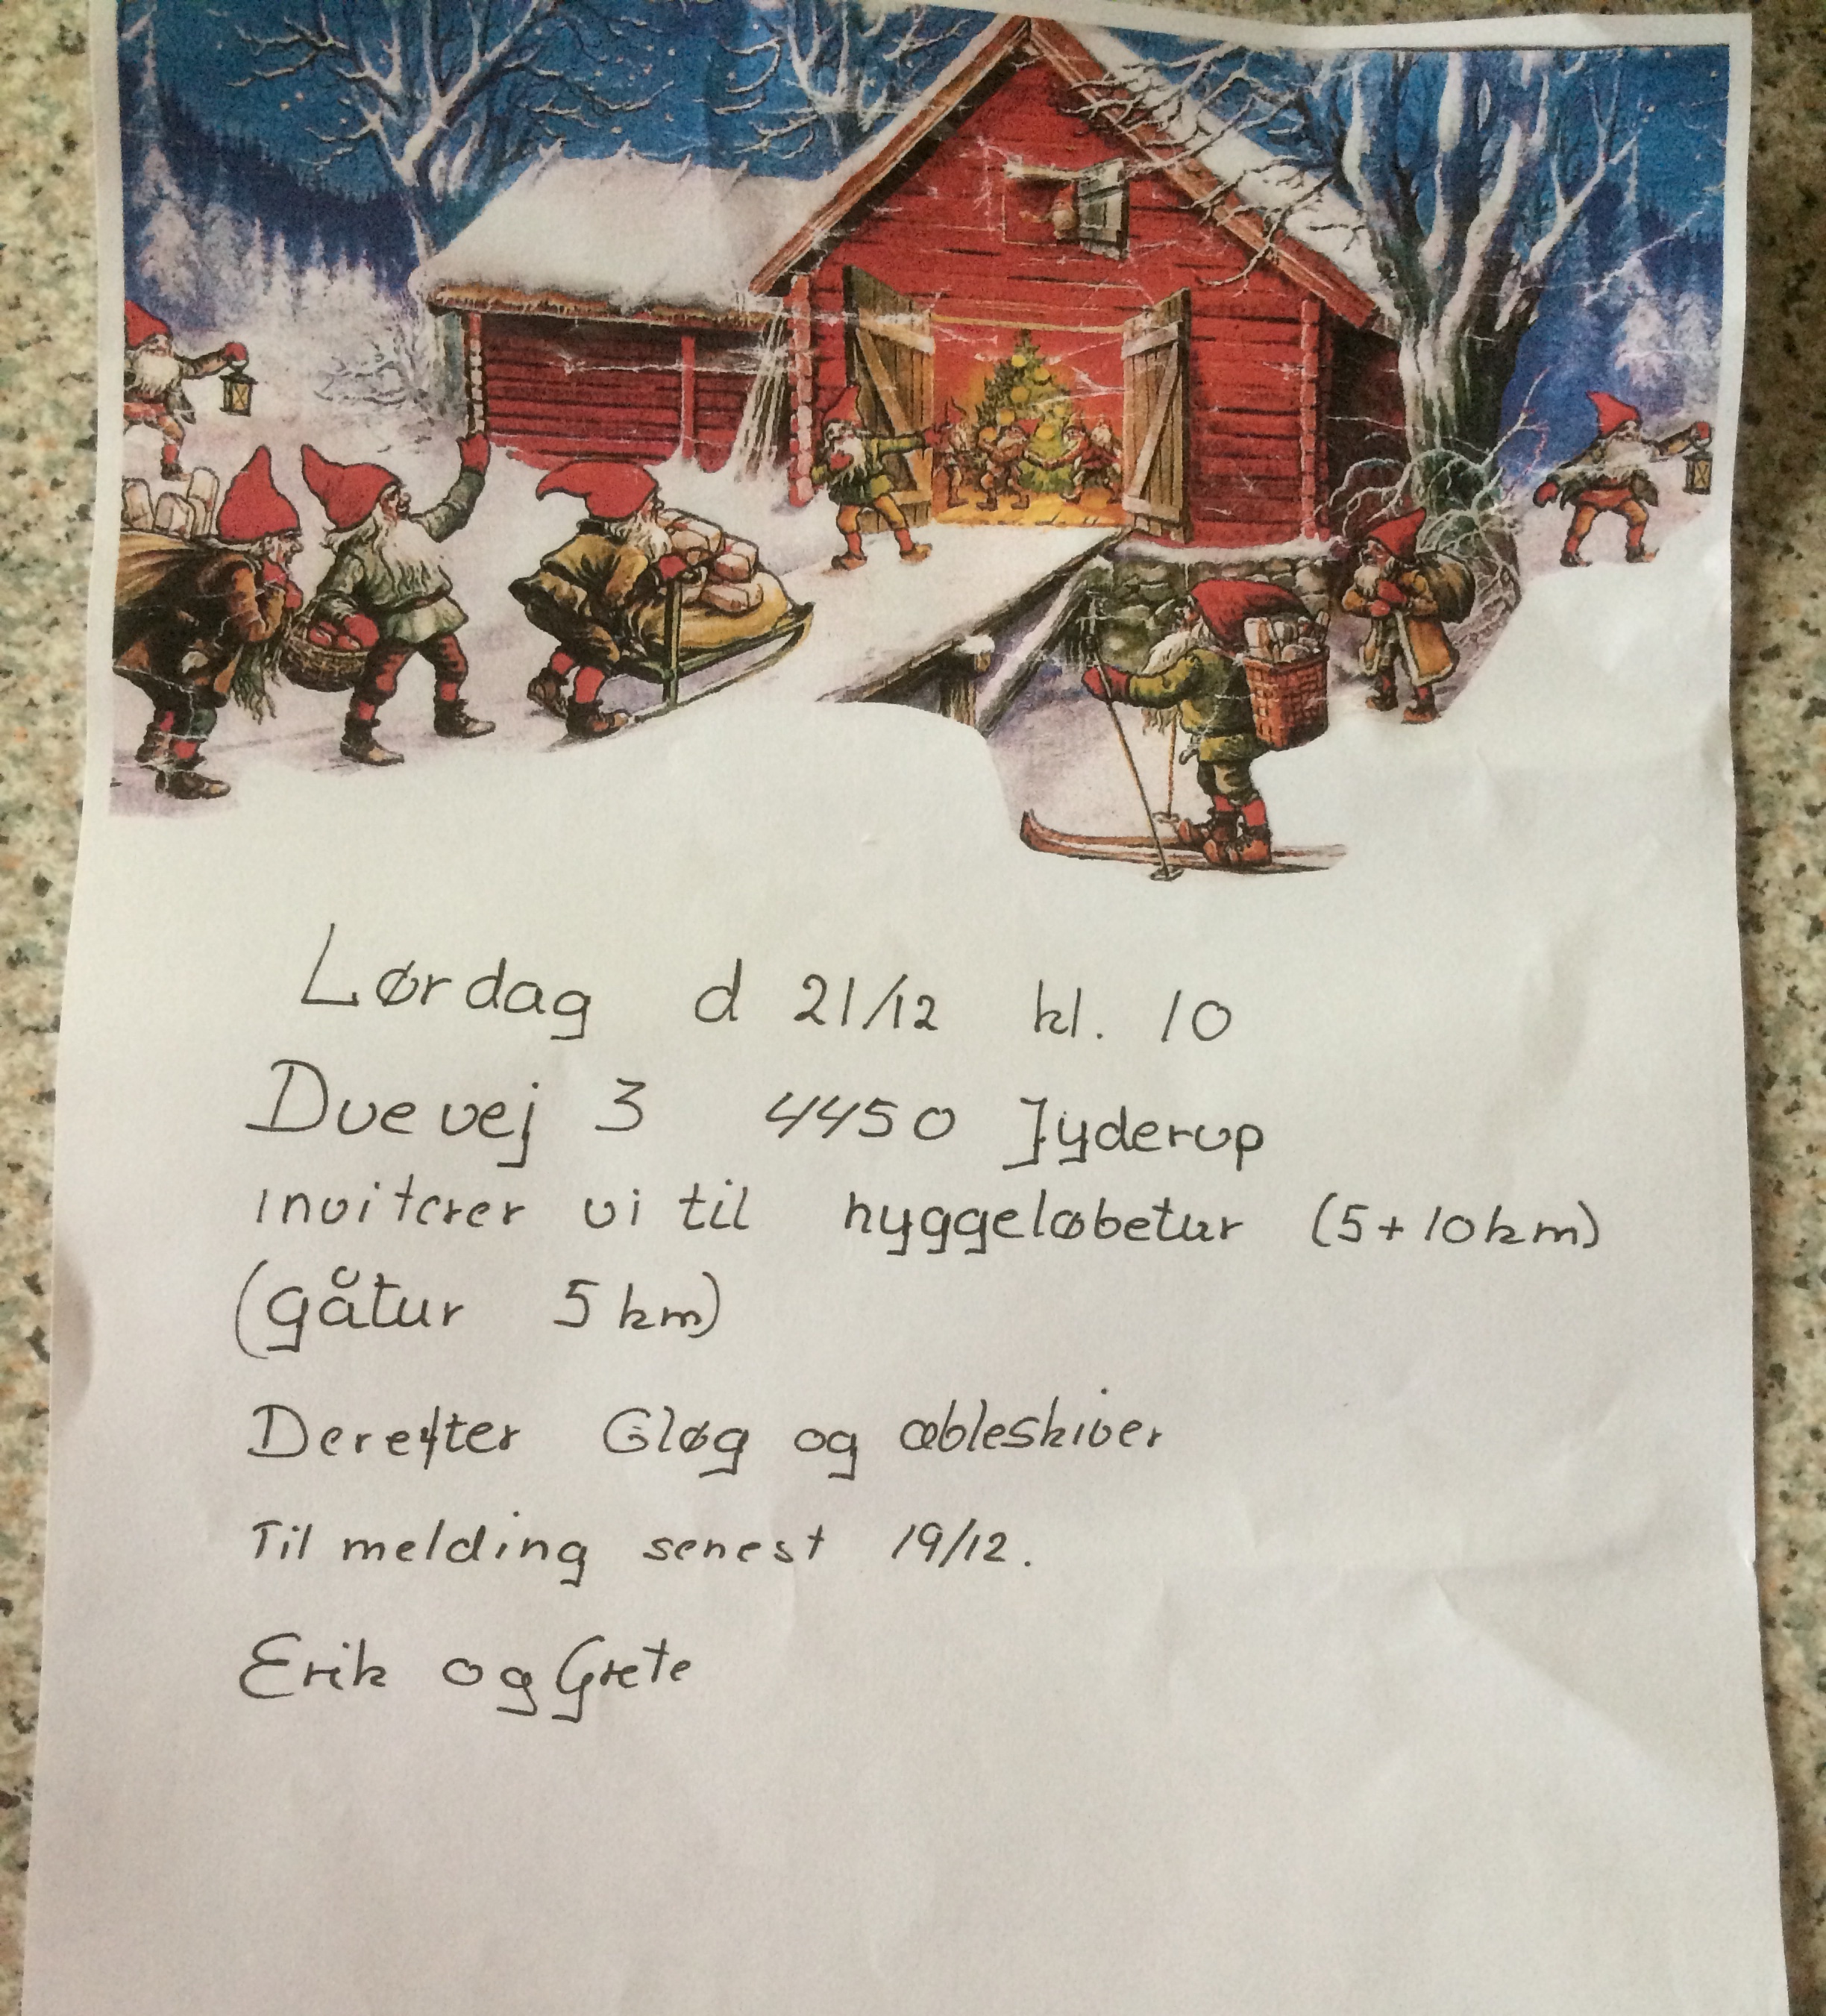 Lørdag d 21/12 kl. 10
Duevej 3 4450 Jyderup
inviterer vi til hyggeløbetur (5+10km)
(gåtur 5 km)
Derefter Gløg og æbleskiver
Tilmelding senest 19/12.
Erik og Grete